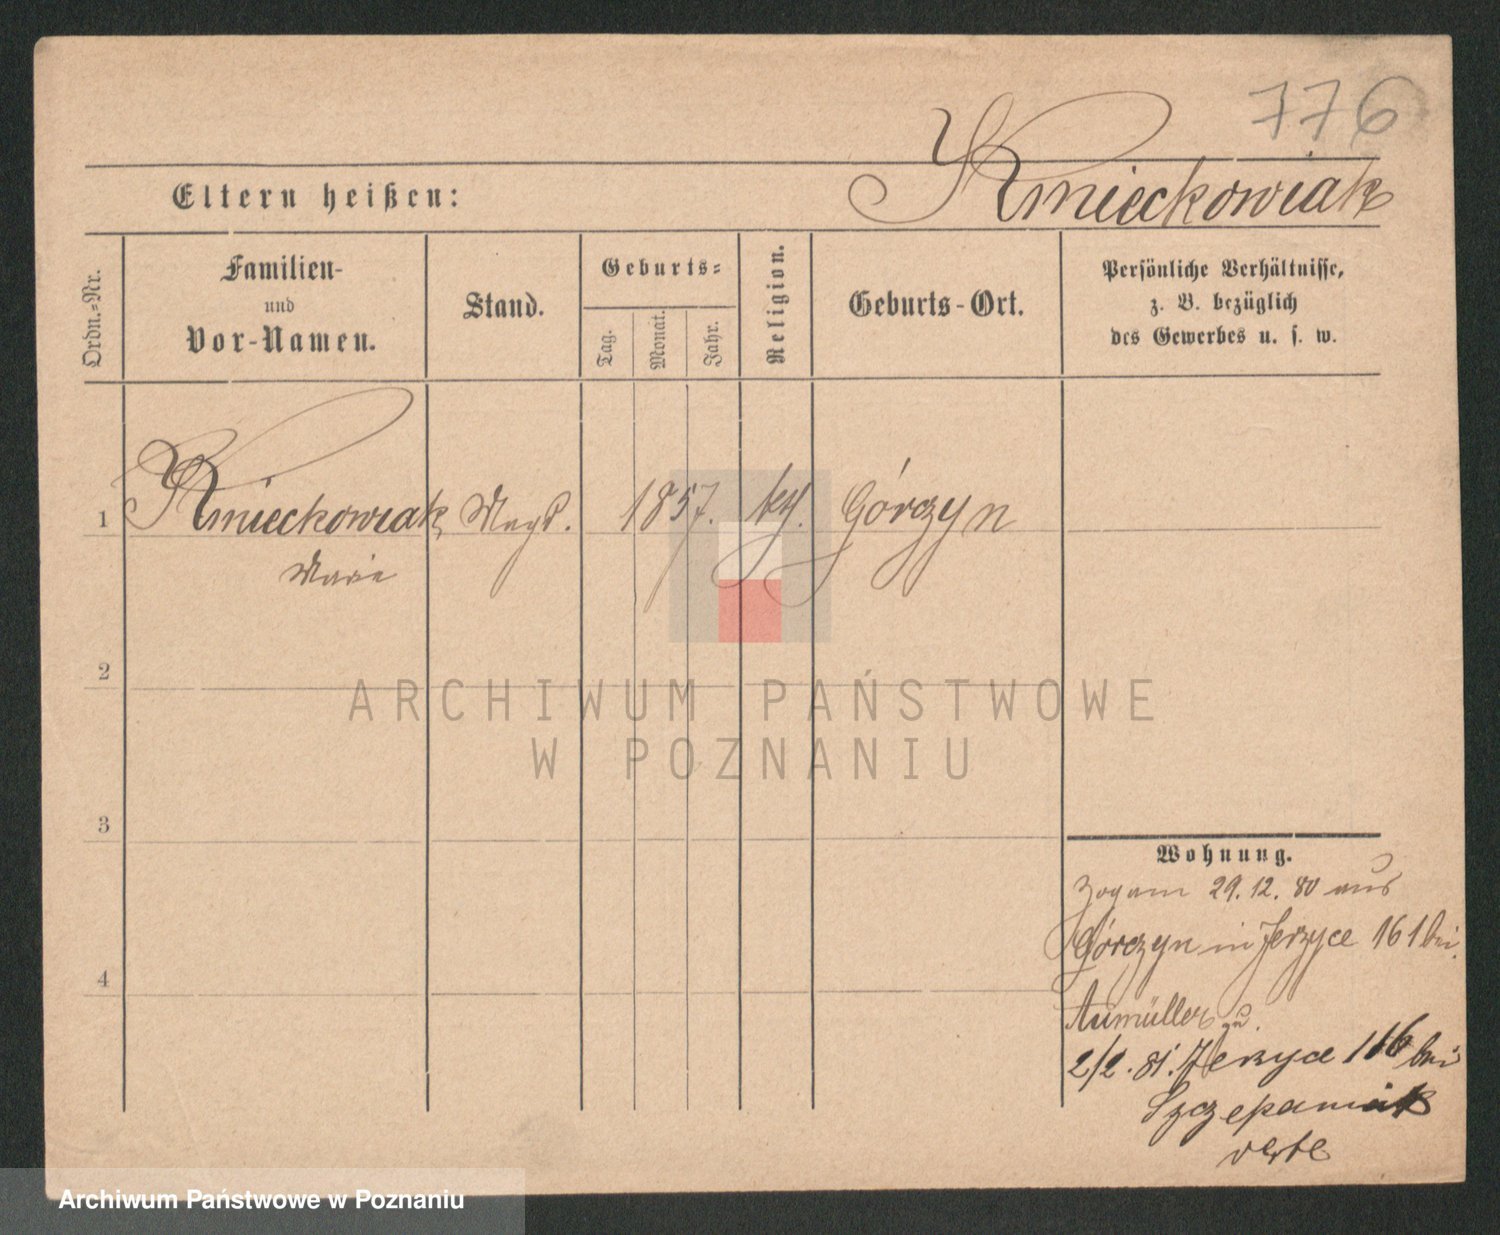 776
Kmieckowiak
Eltern heißen:
Ordn.-Nr.
Familien-
und
Vor-Namen.
Stand.
Geburts-
Tag.
Monat.
Jahr.
Religion.
Geburts-Ort.
Persönliche Verhältnisse,
z. B. bezüglich
des Gewerbes u. s. w.
1 Kmieckowiak Magd. 1857. kth. Górczyn
Marie
2
ARCHIWUM PAŃSTWOWE
W POZNANIU
3
Wohnung.
Zog am 29.12.80 aus
Górczyn in Jerzyce 161 bei
4
Aumüller zu.
2/2.81. Jerzyce 116 bei
Szczepaniak
verte
Archiwum Państwowe w Poznaniu